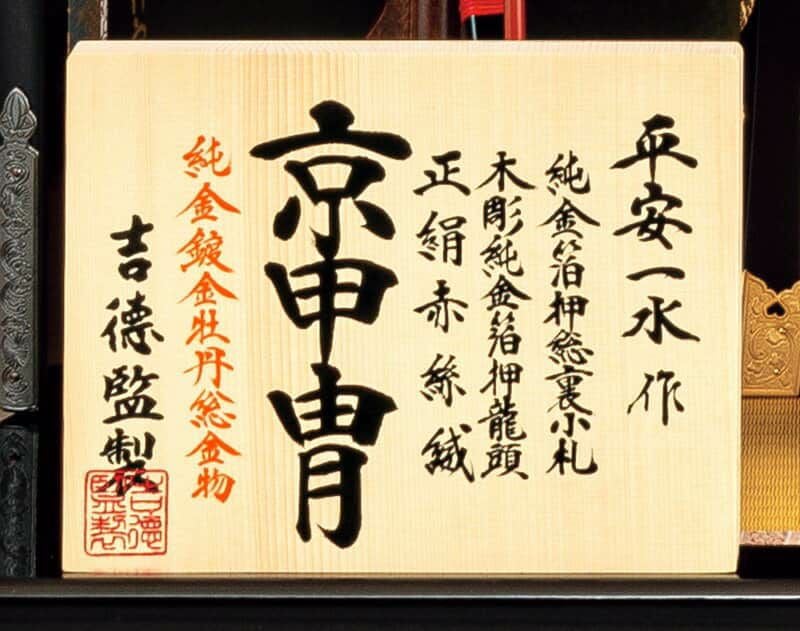 平安一水作
純金箔押総裏小札
木彫純金箔押龍頭
正絹赤絲縅
京甲冑
純金鍍金牡丹総金物
吉德監製
吉德監製